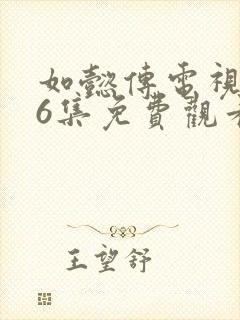 如懿傳電視
6集免費觀看
王望舒